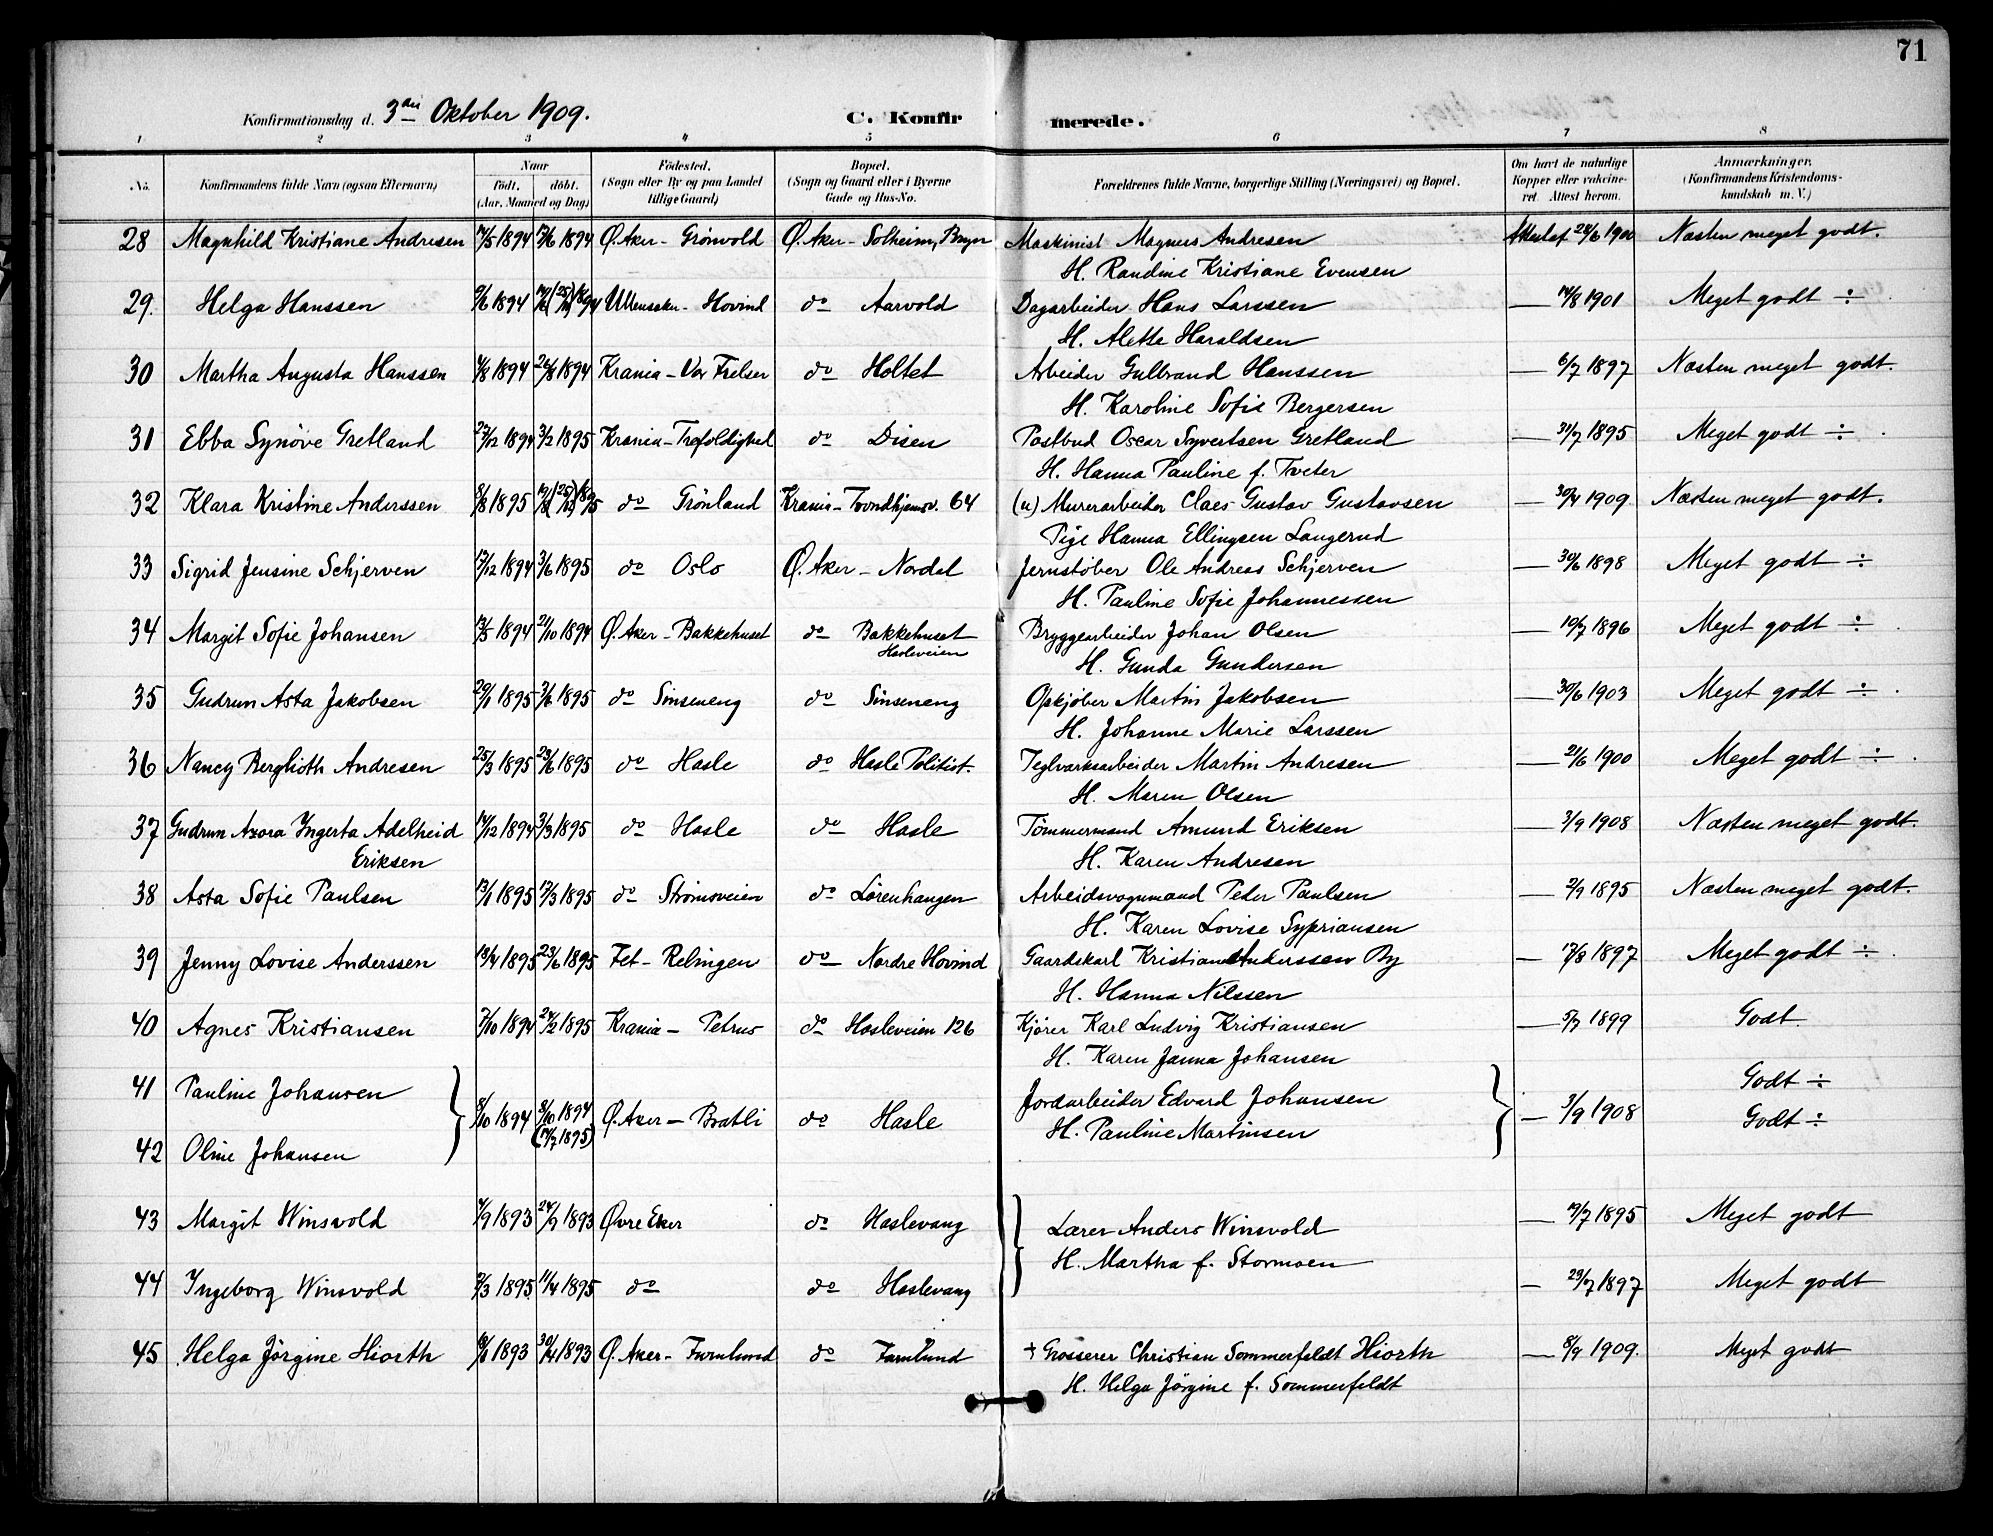 71
Konfirmationsdag d. 3die Oktober 1909.
C. Konfirmerede.
1 2 3 4 5 6 7 8
No. Konfirmandens fulde Navn (ogsaa Efternavn) Naar födt. döbt. (Aar, Maaned og Dag) Födested. (Sogn eller By og paa Landet tillige Gaard) Bopæl. (Sogn og Gaard eller i Byerne Gade og Hus-No. Forældrenes fulde Navne, borgerlige Stilling (Næringsvei) og Bopæl. Om havt de naturlige Kopper eller vakcineret. Attest herom. Anmærkninger. (Konfirmandens Kristendomskundskab m. V.)
28 Magnhild Kristiane Andresen 1894 1894 Ø. Aker - Grönvold Ø. Aker - Solheim, Bryn Maskinist Magnus Andresen Attestaf 1900 Næsten meget godt.
H. Randine Kristiane Evensen
29. Helga Hanssen 1894 Ullensaker - Hovind do Aarvold Dagarbeider Hans Larssen — 14/8 1901 Meget godt ÷
H. Alette Haraldsen
30 Martha Augusta Hanssen 1894 1894 Krania - Vor Frelser do Holtet Arbeider Gulbrand Hanssen — 6/7 1897 Næsten meget godt.
H. Karoline Sofie Bergersen
31 Ebba Synöve Gretland 1894 3/2 1895 Krania - Trefoldighed do Disen Postbud Oscar Syvertsen Gretland — 31/7 1895 Meget godt ÷
H. Hanna Pauline f. Tveter
32 Klara Kristine Anderssen 1895 do Grönland Krania - Trondhjemsv. 64 (u) Murerarbeider Claes Gustav Gustavsen — 30/4 1909. Næsten meget godt.
Pige Hanna Ellingsen Langerud
33 Sigrid Jensine Schjerven 17/12 1894 3/6 1895 do Oslo Ø. Aker - Nordal Jernstøber Ole Andreas Schjerven — 30/6 1898 Meget godt ÷
H. Pauline Sofie Johannessen
34 Margit Sofie Johansen 1894 21/10 1894 Ø. Aker - Bakkehuset do Bakkehuset Bryggearbeider Johan Olsen — 10/7 1896 Meget godt ÷
Hasleveien H. Gunda Gundersen
35 Gudrun Asta Jakobsen 1895 3/6 1895 do Sinseneng do Sinseneng Opkjøber Martin Jakobsen — 30/6 1903 Meget godt ÷
H. Johanne Marie Larssen
36 Nancy Berglioth Andresen 25/3 1895 23/6 1895 do Hasle do Hasle Politist. Teglværksarbeider Martin Andresen — 21/6 1900 Meget godt ÷
H. Maren Olsen
37 Gudrun Axora Ingerta Adelheid 14/12 1894 3/3 1895 do Hasle do Hasle Tömmermand Amund Eriksen — 3/9 1908 Næsten meget godt.
Eriksen H. Karen Andresen
38 Asta Sofie Paulsen 13/1 1895 17/3 1895 do Strömsveien do Lørenhaugen Arbeidsvognmand Peder Paulsen — 2/9 1895 Næsten meget godt.
H. Karen Lovise Sypriansen
39 Jenny Lovise Anderssen 13/4 1895 23/6 1895 Fet - Relingen do Nordre Hovind Gaardskarl Kristian Anderssen By — 17/8 1897 Meget godt ÷
H. Hanna Nilssen
40 Agnes Kristiansen 7/10 1894 24/2 1895 Krania - Petrus do Hasleveien 126 Kjører Karl Ludvig Kristiansen — 5/7 1899 Godt.
H. Karen Janna Johansen
41 Pauline Johansen 8/10 1894 8/10 1894 Ø. Aker - Bratli do Hasle Jordarbeider Edvard Johansen — 3/9 1908 Godt ÷
42 Oline Johansen (1895) H. Pauline Martinsen Godt ÷
43 Margit Winsvold 1893 24/9 1893 Øvre Eker do Haslevang Lærer Anders Winsvold — 1895 Meget godt
H. Martha f. Stormoen
44 Ingeborg Winsvold 1895 11/4 1895 do do Haslevang — 23/7 1897 Meget godt
45 Helga Jörgine Hiorth 1893 30/4 1893 Ø. Aker - Furulund do Furulund + Grosserer Christian Sommerfeldt Hiorth — 8/9 1909. Meget godt
H. Helga Jörgine f. Sommerfeldt